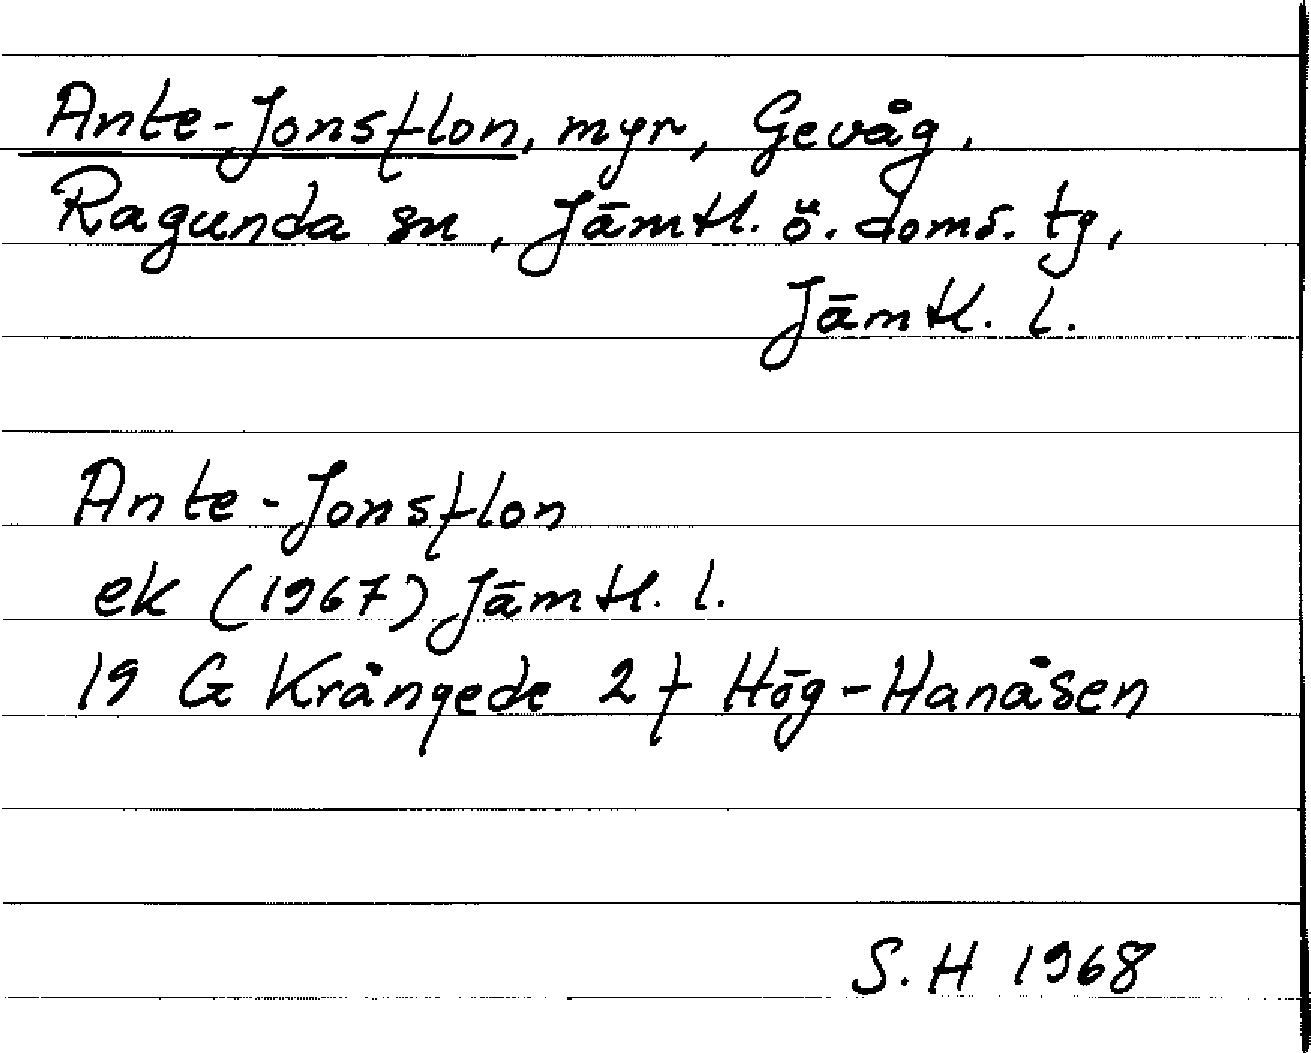 Ante-Jonsflon, myr, Gevåg,
Ragunda sn, Jämtl. ö. doms. tg,
Jämtl. l.
Ante-Jonsflon
ek (1967) Jämtl. l.
19 G Krångede 2 f Hög-Hanåsen
S.H 1968